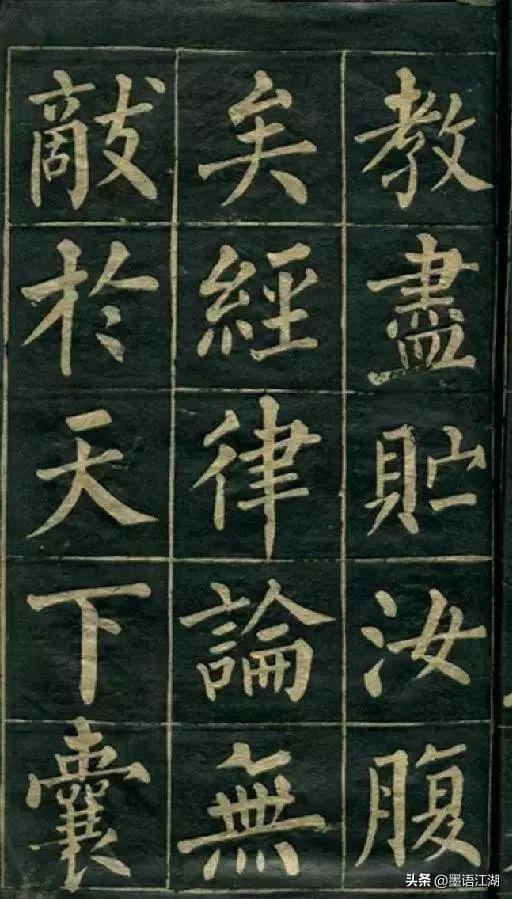 教盡貯汝腹
矣經律論無
敵於天下囊
头条 @墨语江湖